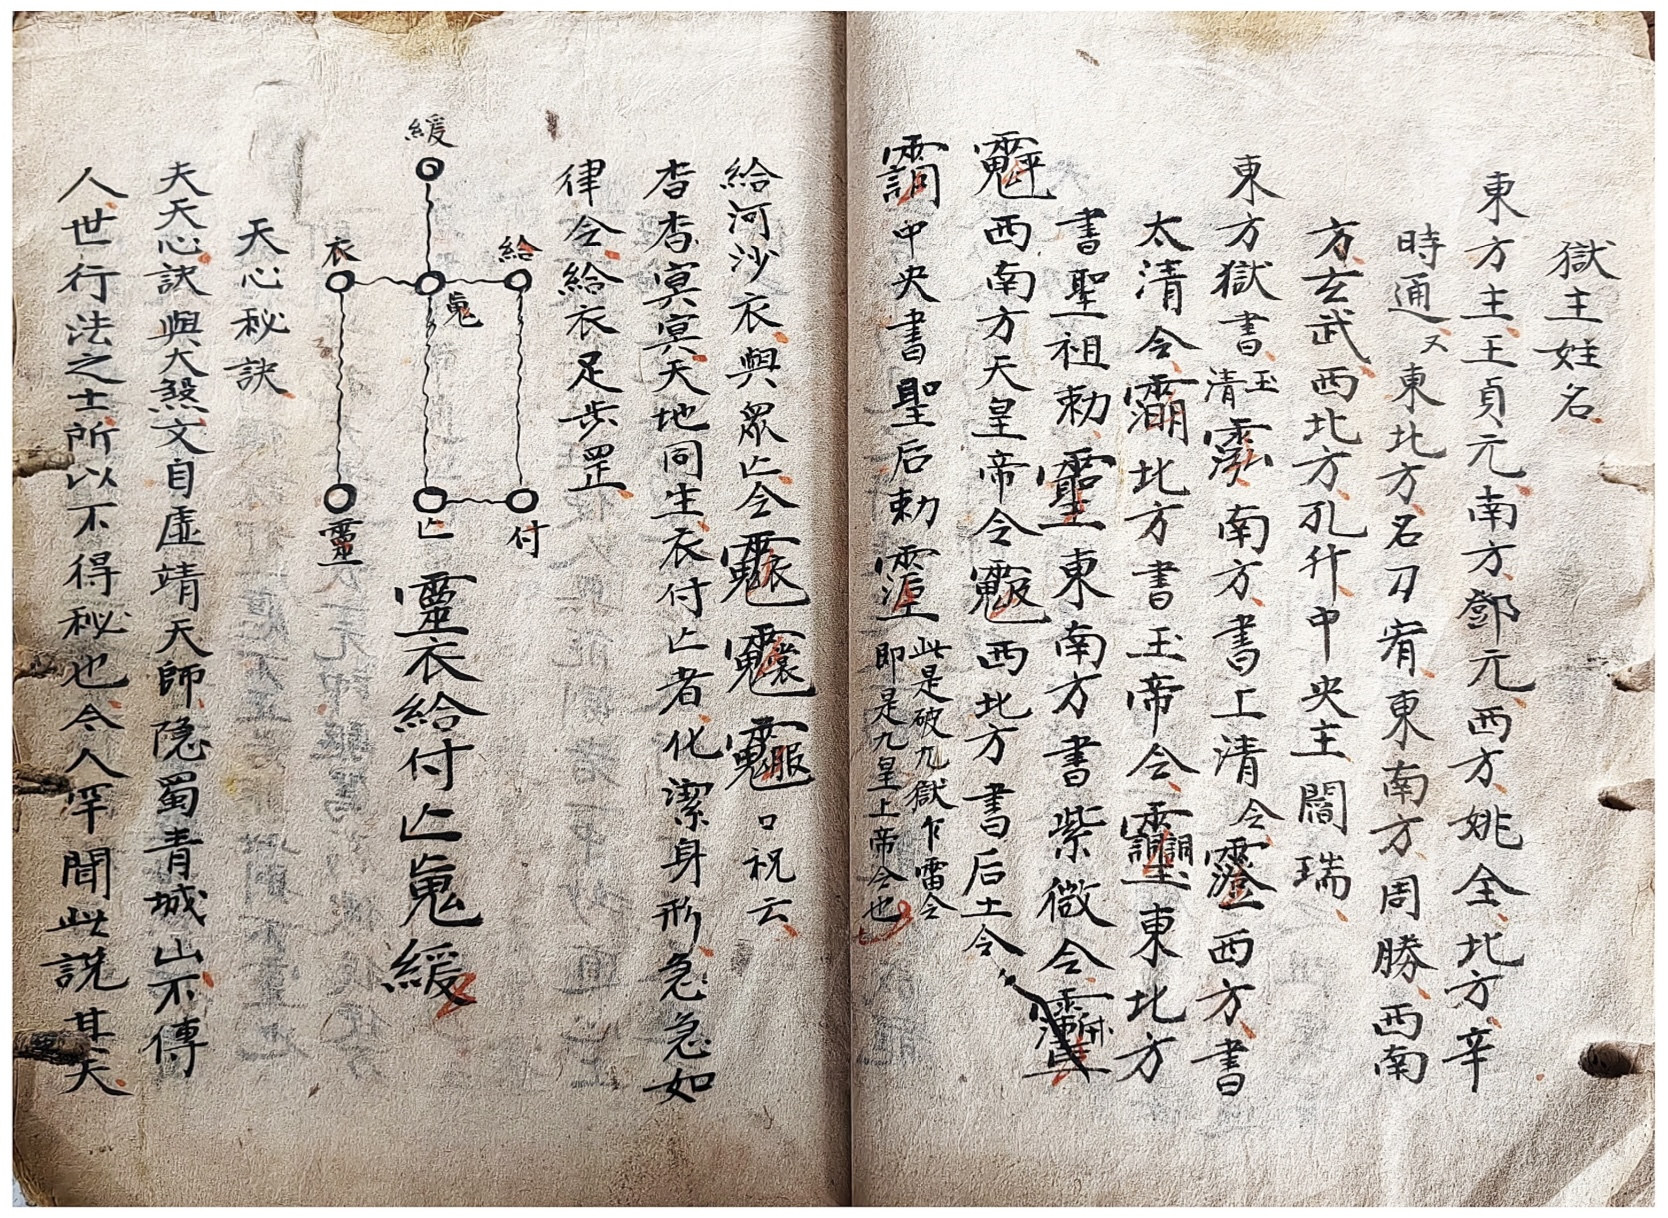 獄主姓名
東方主王貞元南方鄧元西方姚全北方辛
時通又東北方名刀宥東南方周勝西南
方玄武西北方孔升中央主閻瑞
東方獄書玉清南方書上清令西方書
太清令北方書玉帝令東北方
書聖祖勅東南方書紫微令
西南方天皇帝令西北方書后土令
中央書聖后勅此是破九獄乍雷令
即是九皇上帝令也
給河沙衣與眾亾令口祝云
杳杳冥冥天地同生衣付亾者化潔身形急急如
律令給衣足步罡
緩
衣
給
鬼
靈
亾
付
靈衣給付亾鬼緩
天心秘訣
夫天心訣與大煞文自虛靖天師隐蜀青城山不傳
人世行法之士所以不得秘也令人罕聞此説其天